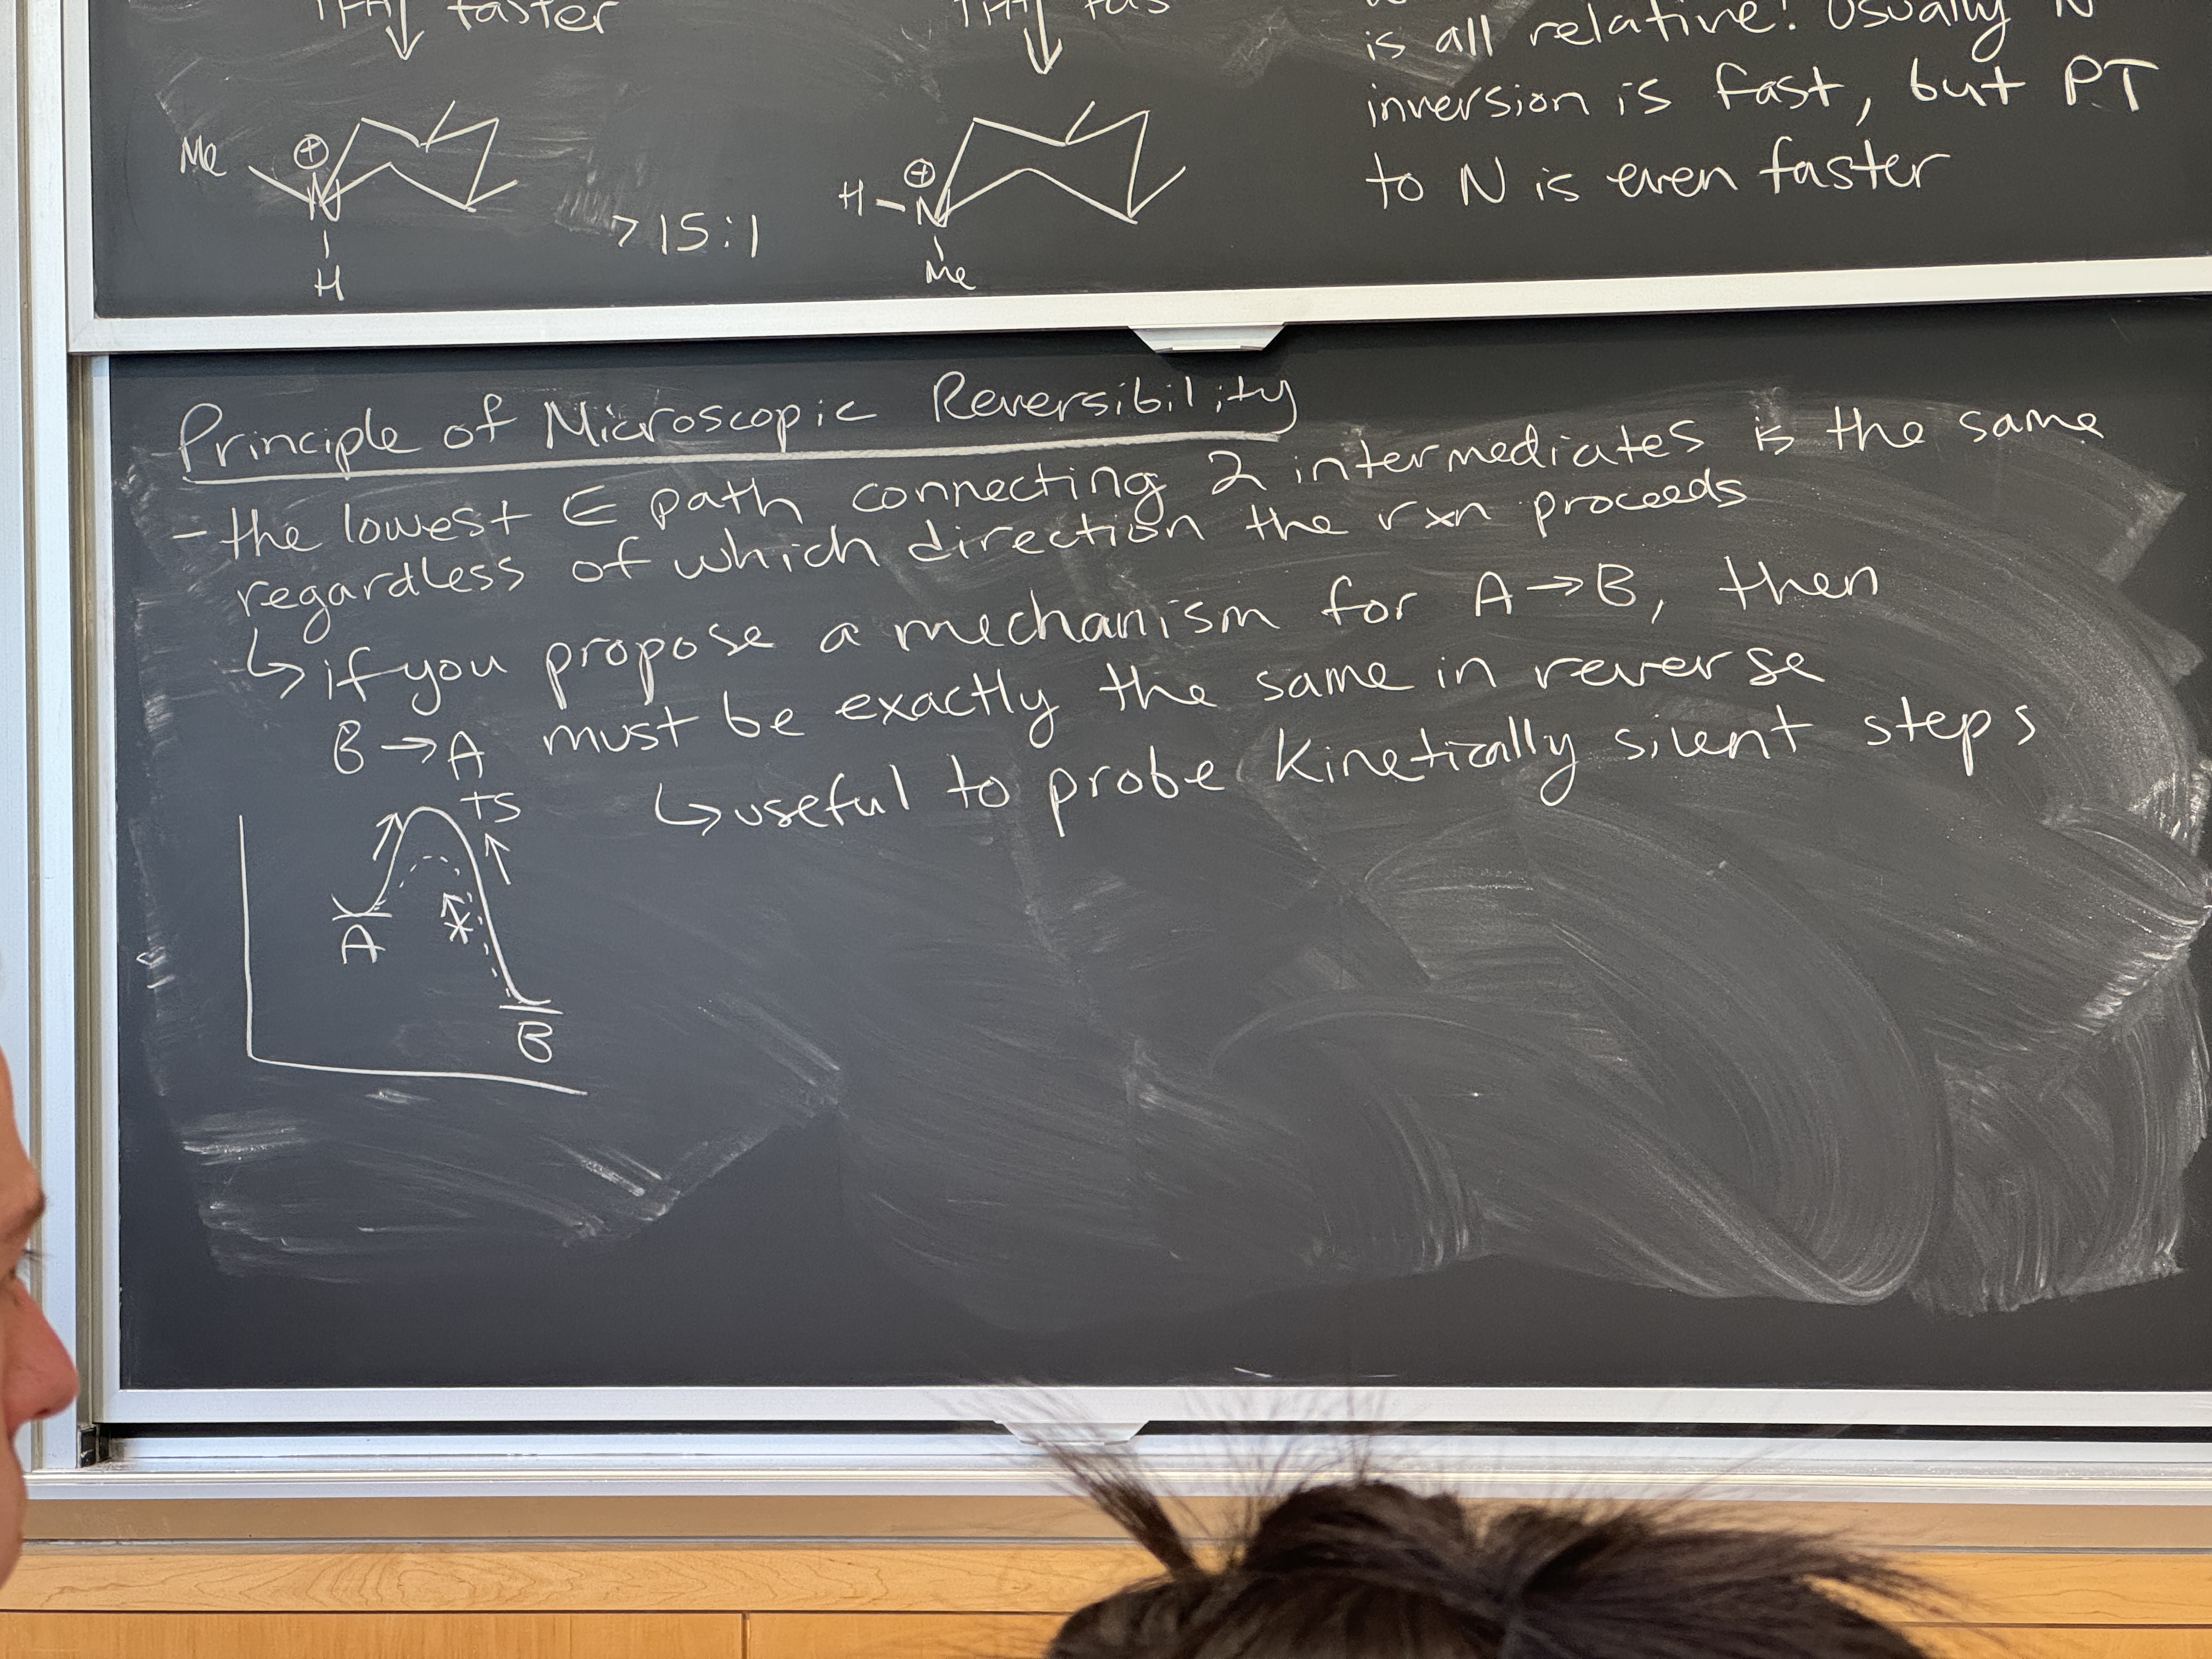 TFA faster
TFA
is all relative! Usually N
inversion is fast, but PT
to N is even faster
Me
⊕
N
H
>15:1
H-N
⊕
Me
Principle of Microscopic Reversibility
- the lowest E path connecting 2 intermediates is the same
regardless of which direction the rxn proceeds
↳ if you propose a mechanism for A→B, then
B→A must be exactly the same in reverse
↳ useful to probe kinetically silent steps
TS
A
B